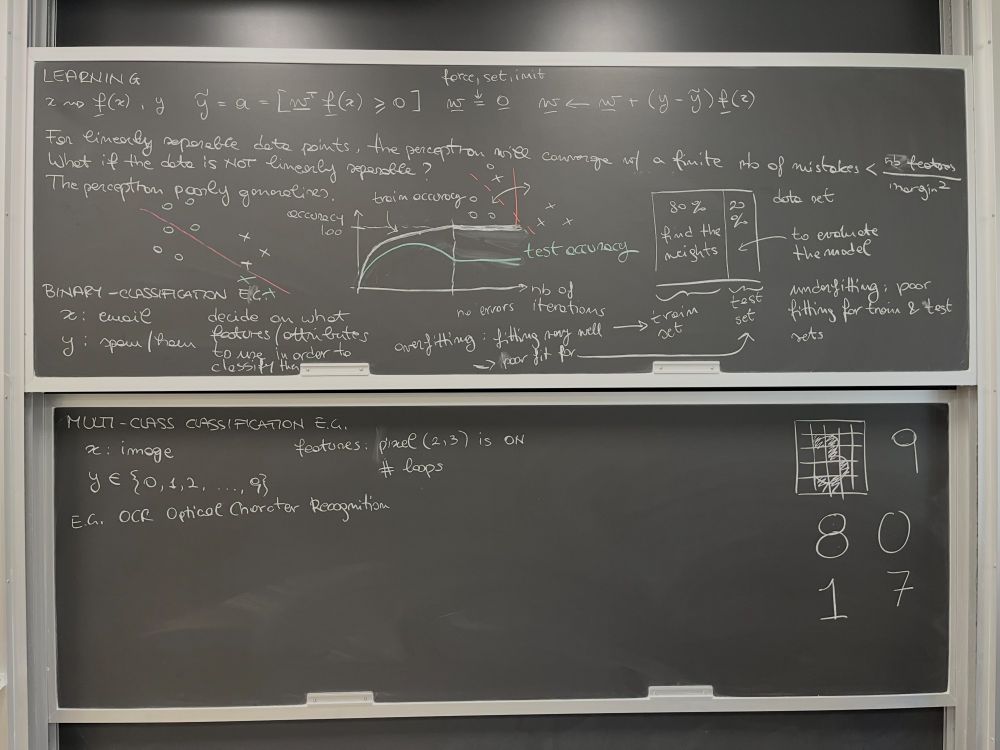 LEARNING
force, set, init
x ⇝ f(x), y   ỹ = a = [wᵀ f(x) ⩾ 0]   w = 0   w ← w + (y - ỹ) f(x)
For linearly separable data points, the perceptron will converge w/ a finite nb of mistakes < nb features / margin²
What if the data is NOT linearly separable?
The perceptron poorly generalizes.
train accuracy
accuracy
100
test accuracy
nb of
iterations
no errors
80%
find the
weights
20
%
data set
to evaluate
the model
train
set
test
set
underfitting: poor
fitting for train & test
sets
overfitting: fitting very well
→ poor fit for
BINARY-CLASSIFICATION E.G.
x: email
y: spam/ham
decide on what
features/attributes
to use in order to
classify the
MULTI-CLASS CLASSIFICATION E.G.
x: image
features: pixel (2,3) is ON
# loops
y ∈ {0,1,2, ..., 9}
E.G. OCR Optical Character Recognition
9
8 0
1 7